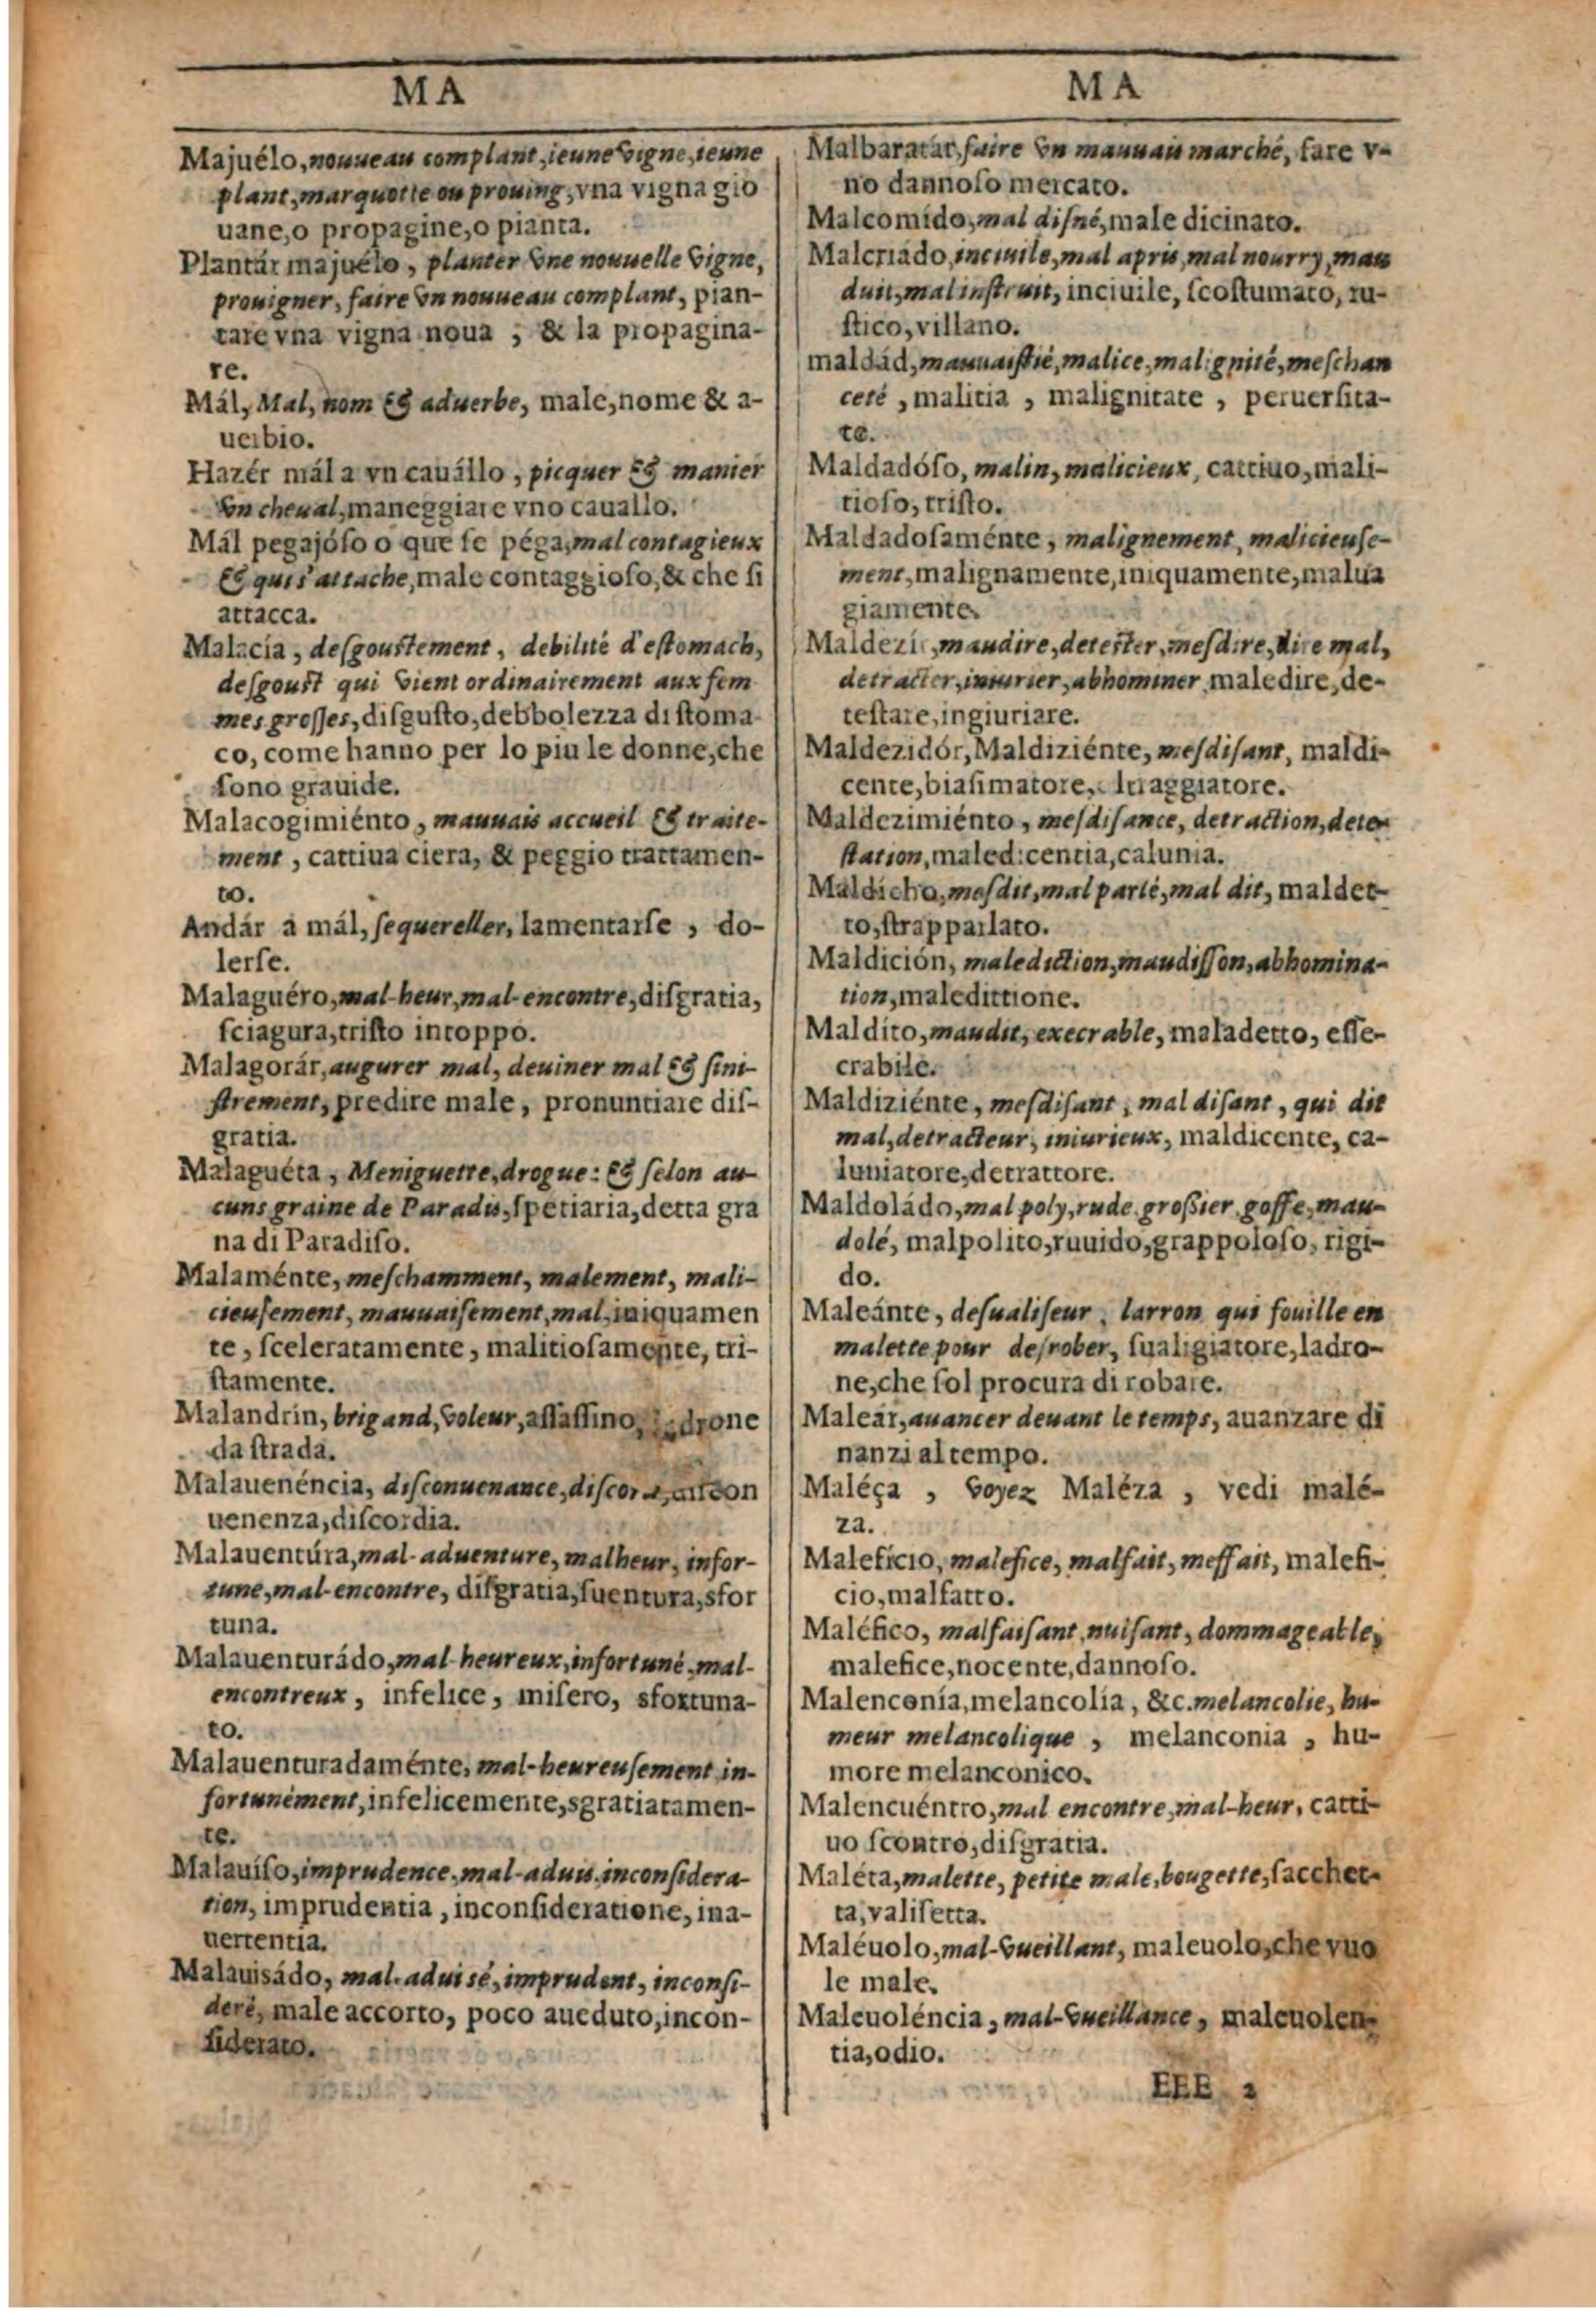 MA
Majuélo, nouueau complant, ieune vigne, ieune
plant, marquotte ou prouing, vna vigna gio
uane, o propagine, o pianta.
Plantár majuélo, planter vne nouuelle vigne,
prouigner, faire vn nouueau complant, pian-
tare vna vigna noua ; & la propagina-
re.
Mál, Mal, nom & aduerbe, male, nome & a-
uerbio.
Hazér mál a vn cauállo, picquer & manier
vn cheual, maneggiare vno cauallo.
Mál pegajóſo o que ſe péga, mal contagieux
& qui s'attache, male contaggioſo, & che ſi
attacca.
Malacía, deſgouſtement, debilité d'eſtomach,
deſgouſt qui vient ordinairement aux fem
mes groſſes, diſguſto, debbolezza di ſtoma
co, come hanno per lo piu le donne, che
ſono grauide.
Malacogimiénto, mauuais accueil & traite-
ment, cattiua ciera, & peggio trattamen-
to.
Andár a mál, ſe quereller, lamentarſe, do-
lerſe.
Malaguéro, mal-heur, mal-encontre, diſgratia,
ſciagura, triſto intoppo.
Malagorár, augurer mal, deuiner mal & ſini-
ſtrement, predire male, pronuntiare diſ-
gratia.
Malaguéta, Meniguette, drogue: & ſelon au-
cuns graine de Paradis, ſpetiaria, detta gra
na di Paradiſo.
Malaménte, meſchamment, malement, mali-
cieuſement, mauuaiſement, mal, iniquamen
te, ſceleratamente, malitioſamente, tri-
ſtamente.
Malandrín, brigand, voleur, aſſaſſino, ladrone
da ſtrada.
Malauenéncia, diſconuenance, diſcord, diſcon
uenenza, diſcordia.
Malauentúra, mal-aduenture, malheur, infor-
tune, mal-encontre, diſgratia, ſuentura, sfor
tuna.
Malauenturádo, mal-heureux, infortuné, mal-
encontreux, infelice, miſero, sfortuna-
to.
Malauenturadaménte, mal-heureuſement, in-
fortunément, infelicemente, sgratiatamen-
te.
Malauíſo, imprudence, mal-aduis, inconſidera-
tion, imprudentia, inconſideratione, ina-
uertentia.
Malauisádo, mal-aduisé, imprudent, inconſi-
deré, male accorto, poco aueduto, incon-
ſiderato.
MA
Malbaratár, faire vn mauuais marché, fare v-
no dannoſo mercato.
Malcomído, mal diſné, male dicinato.
Malcriádo, inciuile, mal apris, mal nourry, mau
duit, mal inſtruit, inciuile, ſcoſtumato, ru-
ſtico, villano.
maldád, mauuaiſtié, malice, malignité, meſchan
ceté, malitia, malignitate, peruerſita-
te.
Maldadóſo, malin, malicieux, cattiuo, mali-
tioſo, triſto.
Maldadoſaménte, malignement, malicieuſe-
ment, malignamente, iniquamente, malua
giamente.
Maldezír, maudire, deteſter, meſdire, dire mal,
detracter, iniurier, abhominer, maledire, de-
teſtare, ingiuriare.
Maldezidór, Maldiziénte, meſdiſant, maldi-
cente, biaſimatore, ltraggiatore.
Maldezimiénto, meſdiſance, detraction, dete-
ſtation, maledicentia, calunia.
Maldícho, meſdit, mal parlé, mal dit, maldet-
to, ſtrapparlato.
Maldición, malediction, maudiſſon, abhomina-
tion, maledittione.
Maldito, maudit, execrable, maladetto, eſſe-
crabile.
Maldiziénte, meſdiſant, mal diſant, qui dit
mal, detracteur, iniurieux, maldicente, ca-
luniatore, detrattore.
Maldoládo, mal poly, rude, groſſier, goffe, mau-
dolé, malpolito, ruuido, grappoloſo, rigi-
do.
Maleánte, deſualiſeur, larron qui fouille en
malette pour deſrober, ſualigiatore, ladro-
ne, che ſol procura di robare.
Maleár, auancer deuant le temps, auanzare di
nanzi al tempo.
Maléça, voyez Maléza, vedi malé-
za.
Malefício, malefice, malfait, meffait, malefi-
cio, malfatto.
Maléfico, malfaiſant, nuiſant, dommageable,
malefice, nocente, dannoſo.
Malenconía, melancolía, &c. melancolie, hu-
meur melancolique, melanconia, hu-
more melanconico.
Malencuéntro, mal encontre, mal-heur, catti-
uo ſcontro, diſgratia.
Maléta, malette, petite male, bougette, ſacchet-
ta, valiſetta.
Maléuolo, mal-vueillant, maleuolo, che vuo
le male.
Maleuoléncia, mal-vueillance, maleuolen-
tia, odio.
EEE 2